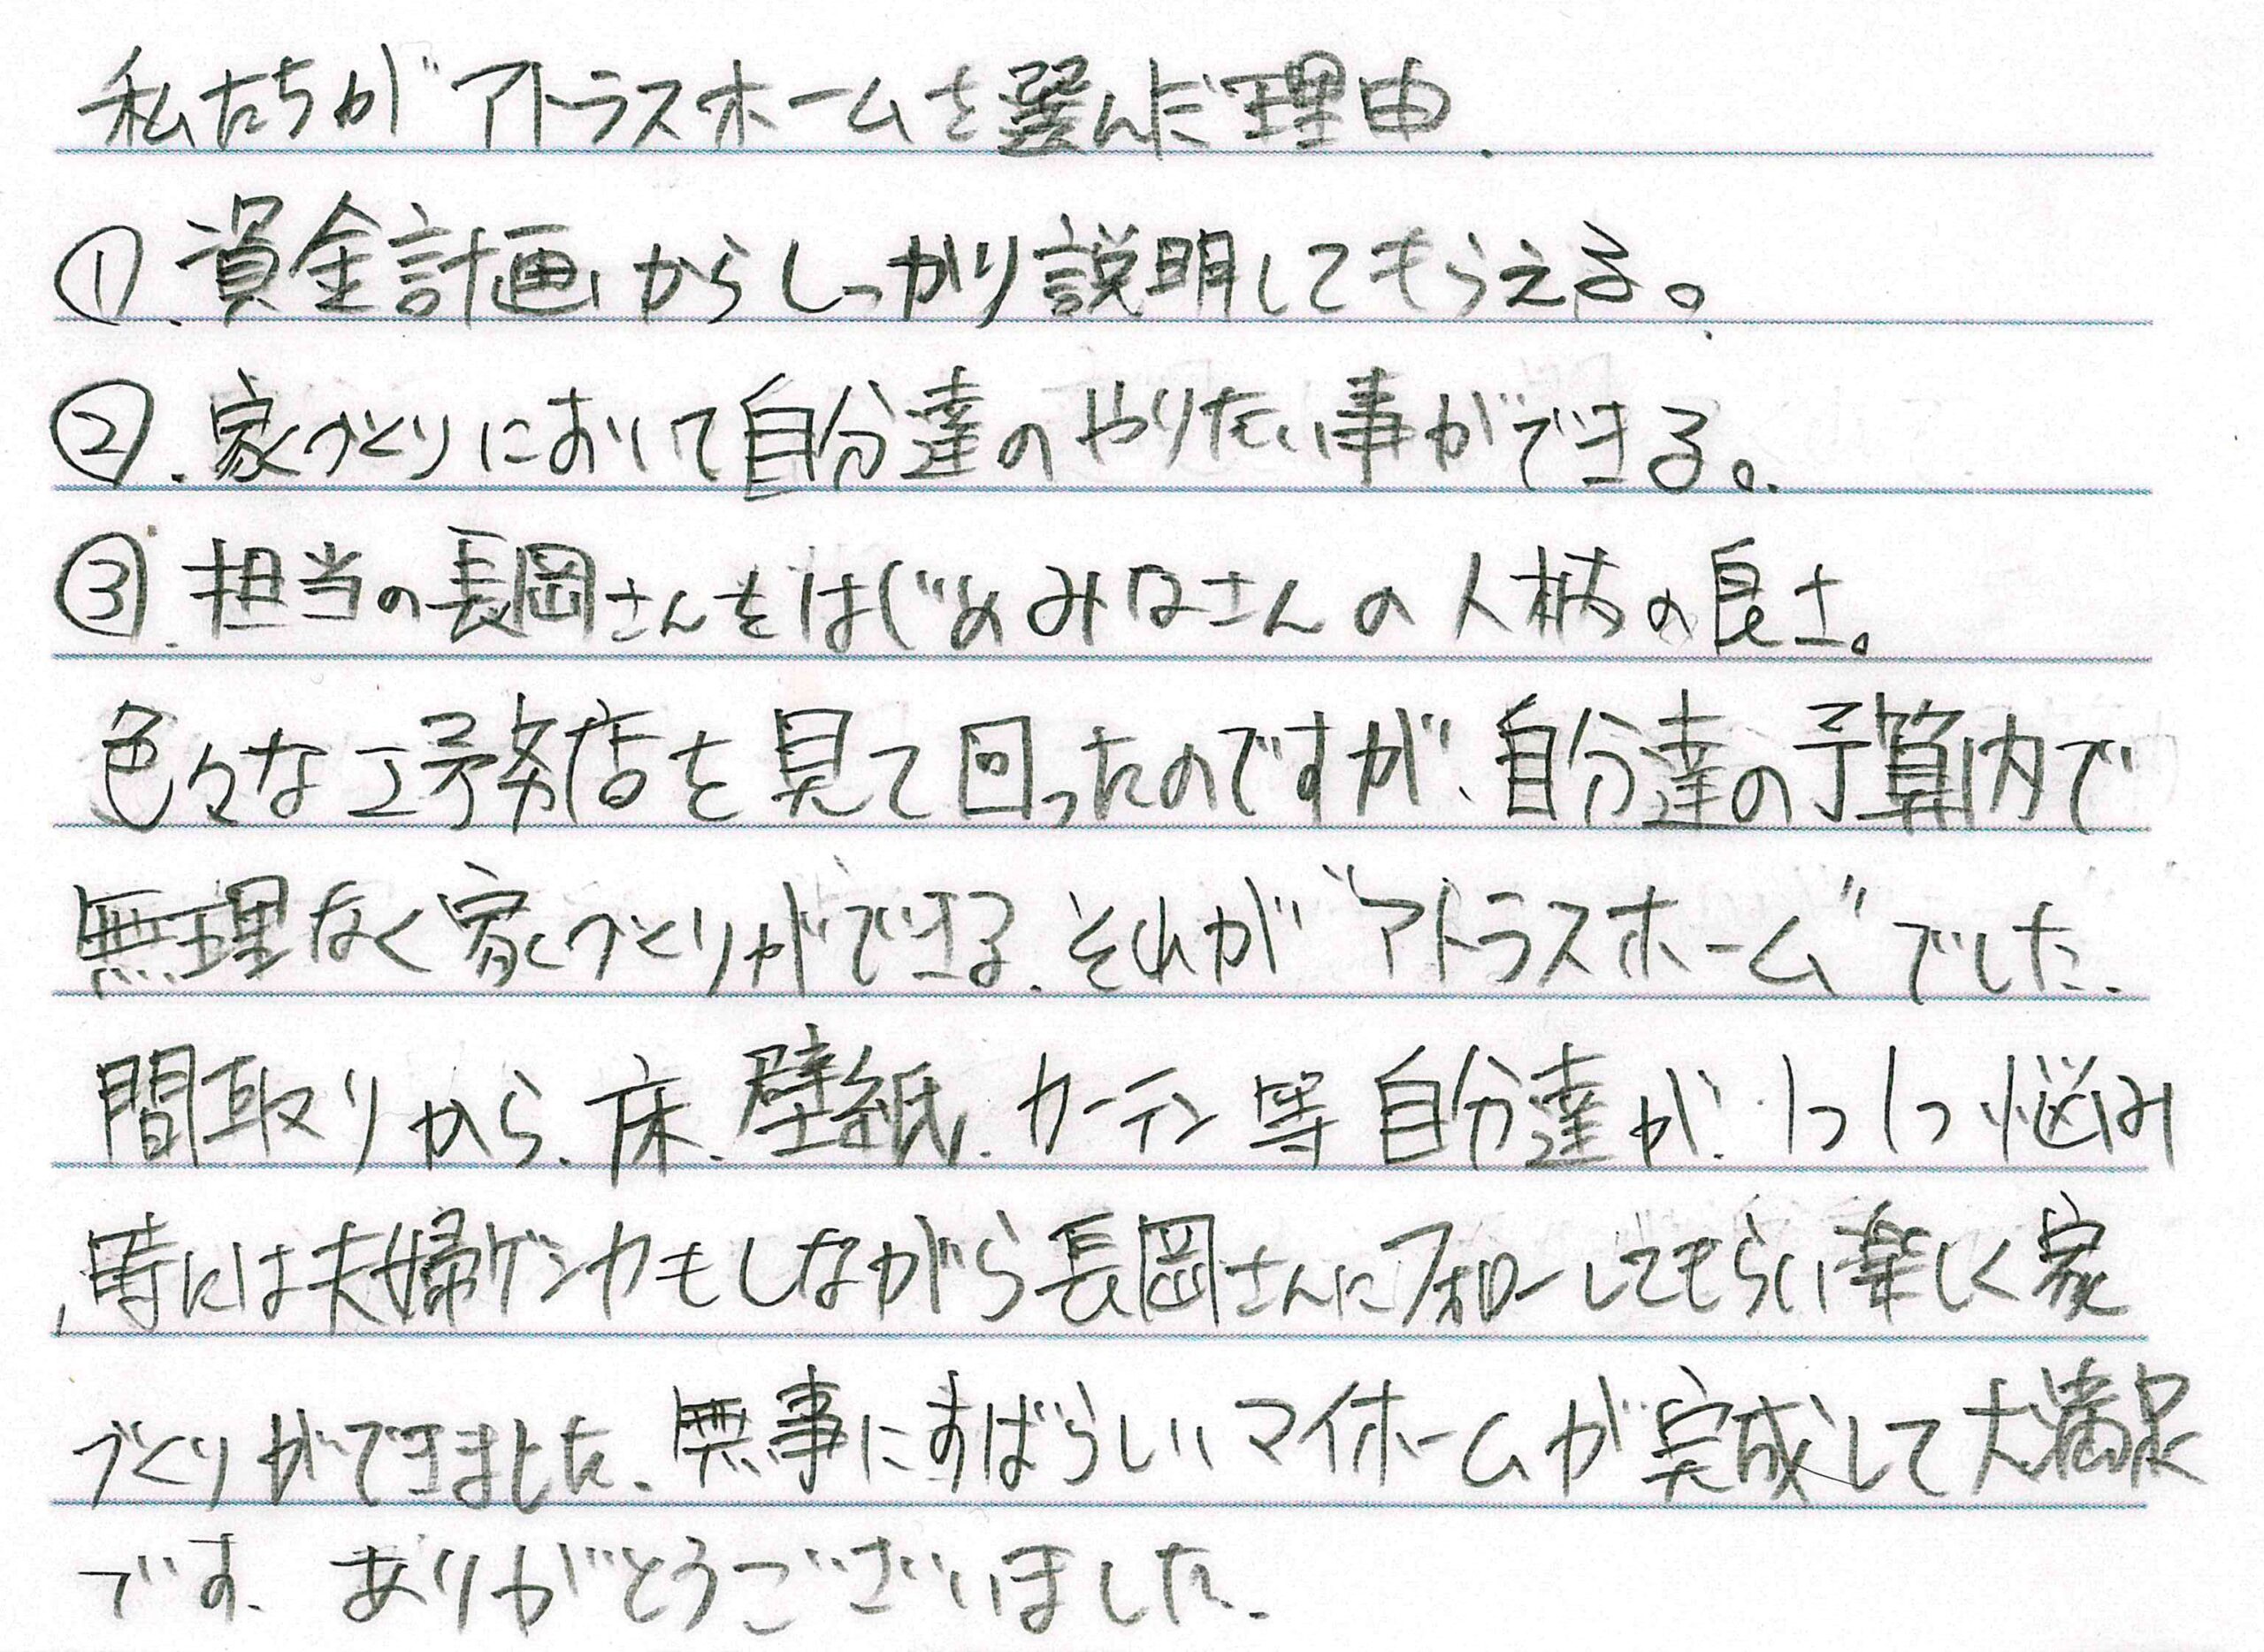 私たちがアトラスホームを選んだ理由.
①.資金計画からしっかり説明してもらえる。
②.家づくりにおいて自分達のやりたい事ができる。
③.担当の長岡さんをはじめみなさんの人柄の良さ。
色々な工務店を見て回ったのですが、自分達の予算内で
無理なく家づくりができる.それが“アトラスホーム”でした.
間取りから.床.壁紙.カーテン等自分達が.1つ1つ悩み
,時には夫婦ゲンカもしながら長岡さんにフォローしてもらい楽しく家
づくりができました.無事にすばらしいマイホームが完成して大満足
です.ありがとうございました.